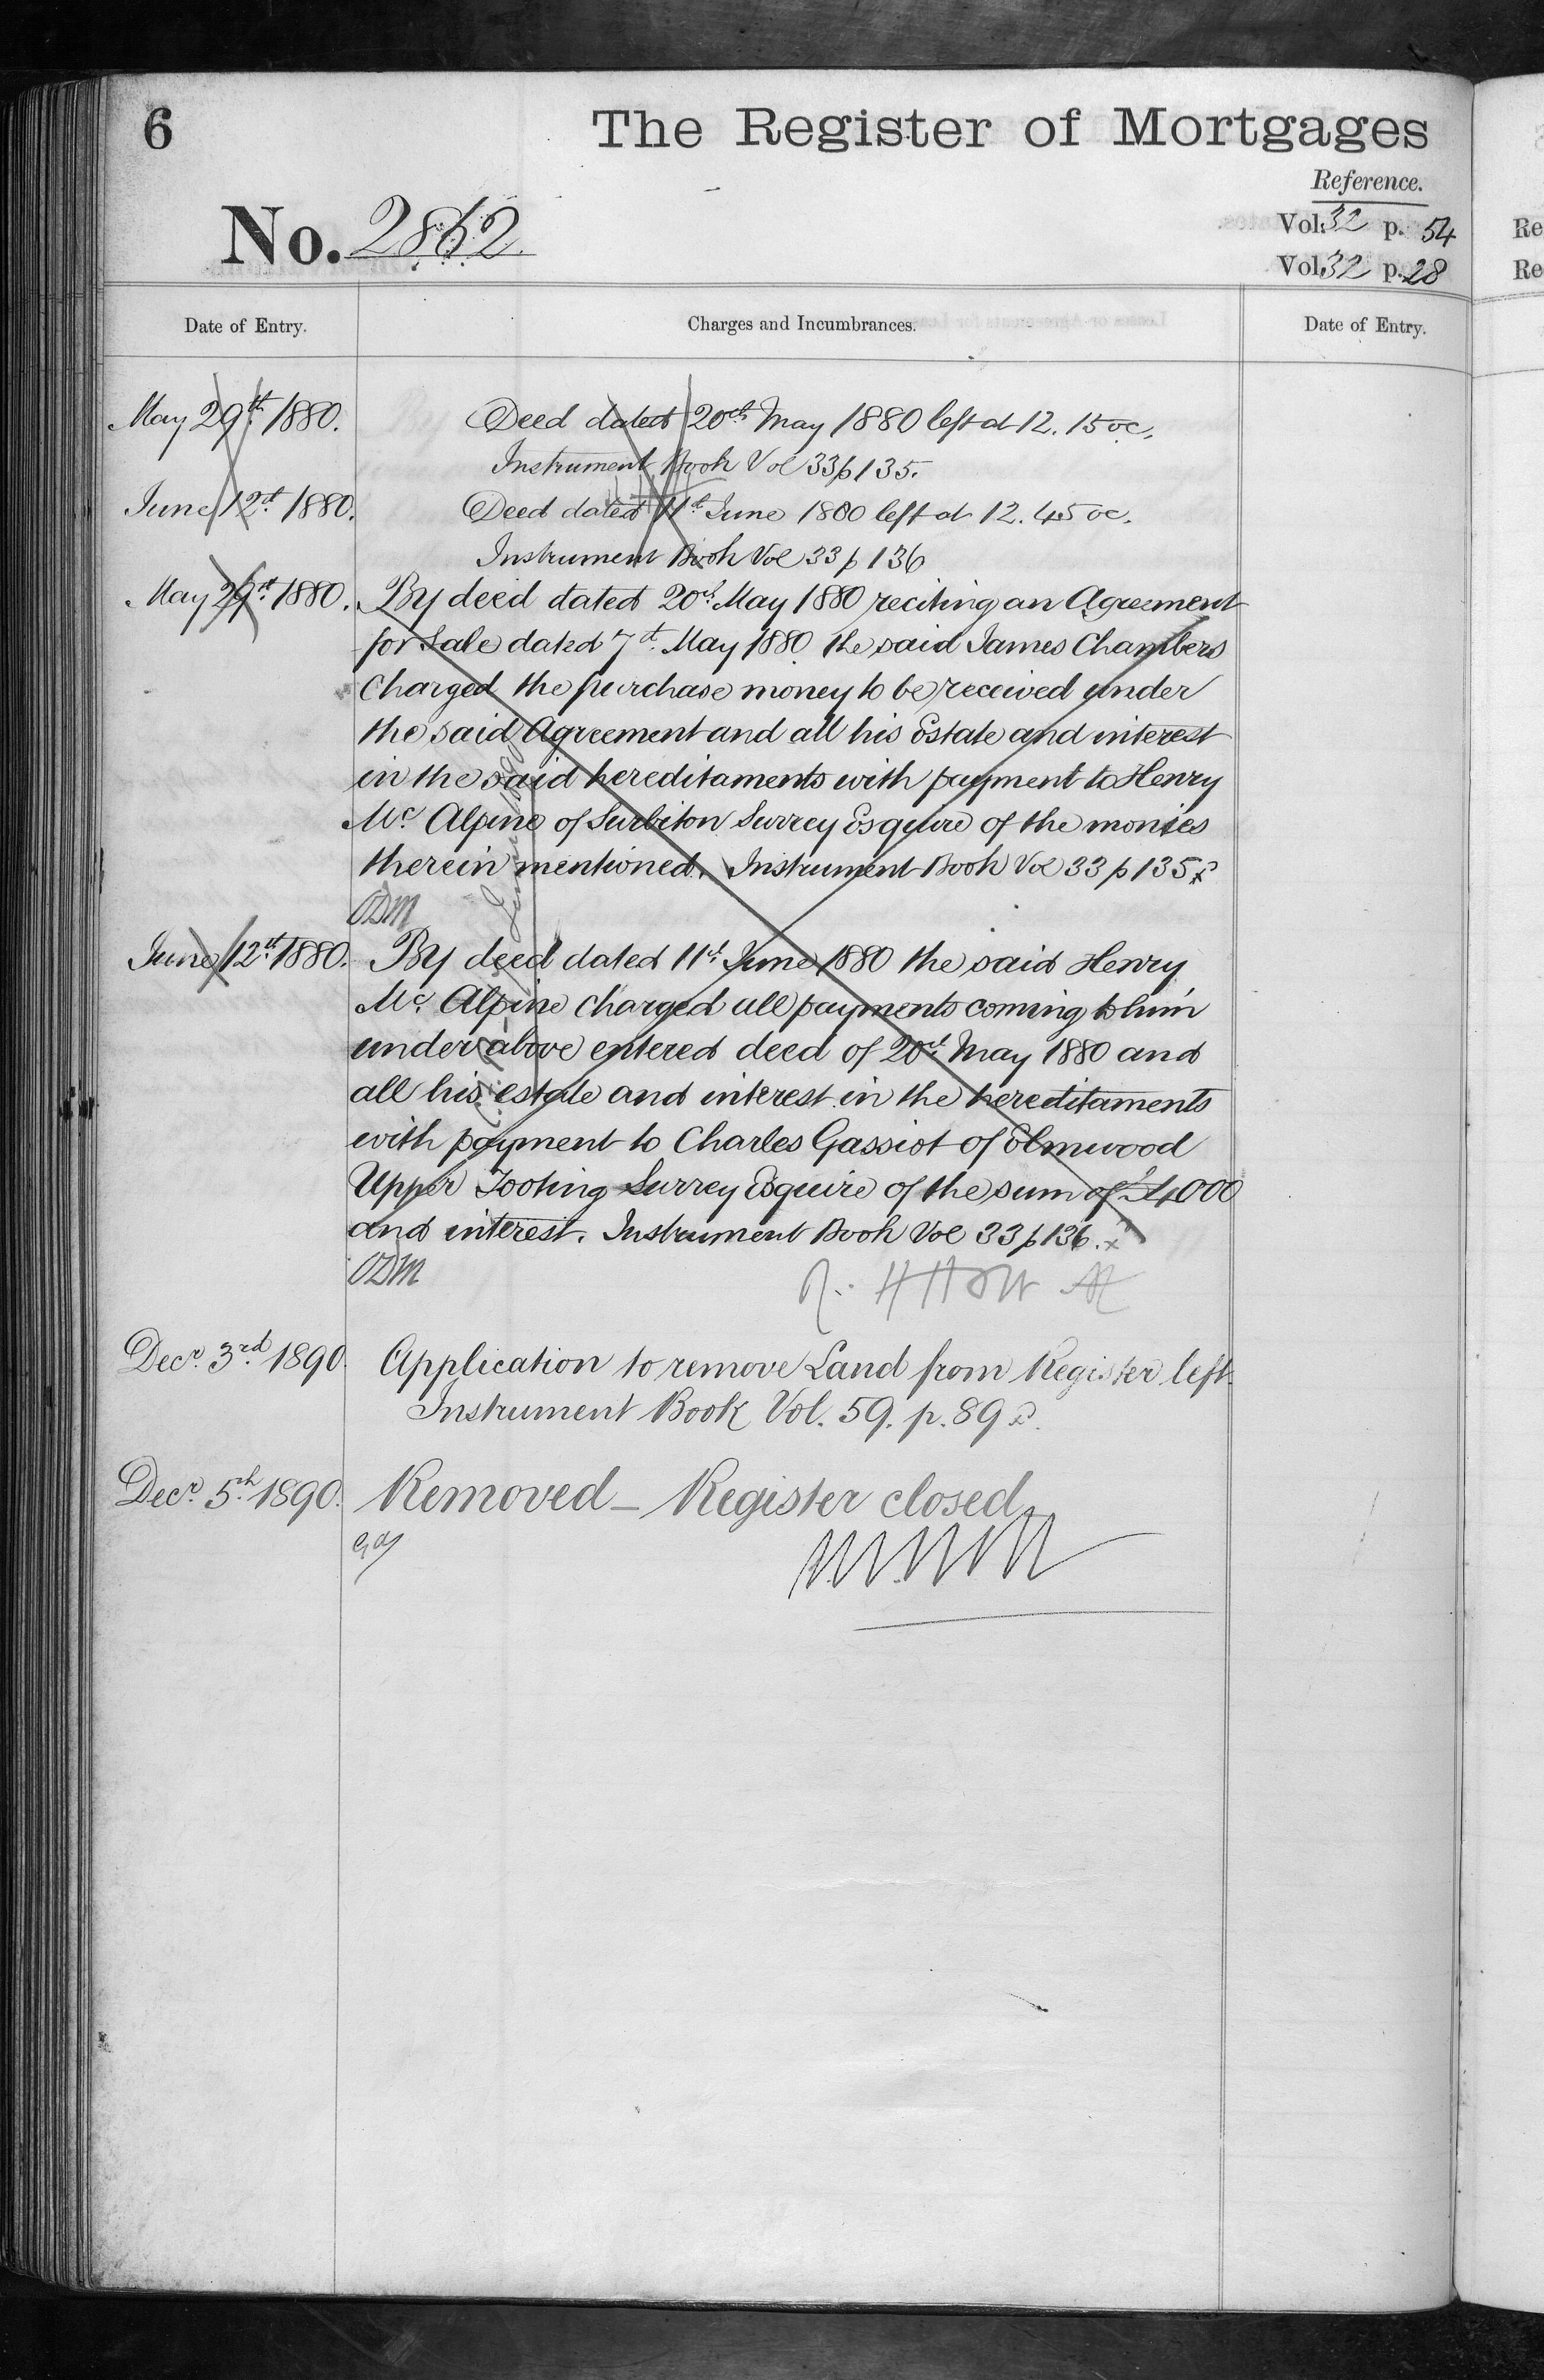 6
The Register of Mortgages
Reference.
No. 2862
Vol. 32 p. 54
Vol. 32 p. 28
Re
Re
Date of Entry.
Charges and Incumbrances.
Date of Entry.
May 29th 1880.
Deed dated 20th May 1880 left at 12.15 oc.
Instrument Book Vol 33 p 135.
June 12th 1880.
Deed dated 11th June 1880 left at 12.45 oc.
Instrument Book Vol 33 p 136
May 29th 1880. By deed dated 20th May 1880 reciting an Agreement
for Sale dated 7th May 1880 the said James Chambers
Charged the purchase money to be received under
the said Agreement and all his Estate and interest
in the said hereditaments with payment to Henry
Mc Alpine of Surbiton Surrey Esquire of the monies
therein mentioned. Instrument Book Vol 33 p 135
ODM
June 12th 1880. By deed dated 11th June 1880 the said Henry
Mc Alpine Charged all payments coming to him
under above entered deed of 20th May 1880 and
all his estate and interest in the hereditaments
with payment to Charles Gassiot of Elmwood
Upper Tooting Surrey Esquire of the sum of £4000
and interest. Instrument Book Vol 33 p 136.
ODM
Decr. 3rd 1890. Application to remove Land from Register left
Instrument Book Vol. 59. p. 89
Decr. 5th 1890. Removed - Register closed